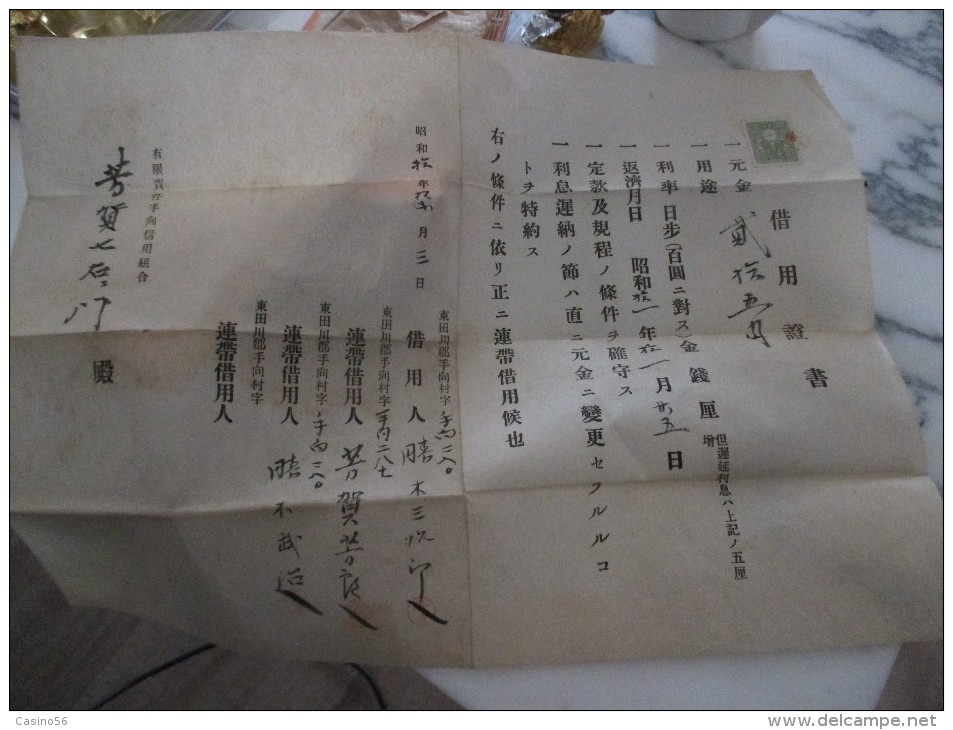 借用證書
一元金 貳拾五円
一用途
一利率 日步(百圓ニ對ス)金 錢 厘 但遲延利息ハ上記ノ五厘增
一返濟月日 昭和拾一年拾一月廿五日
一定款及規程ノ條件ヲ確守ス
一利息遲納ノ節ハ直ニ元金ニ變更セラルルコ
トヲ特約ス
右ノ條件ニ依リ正ニ連帶借用候也
昭和拾年拾貳月三日
東田川郡手向村字手向二八〇
借用人 勝木三
東田川郡手向村字 二八七
連帶借用人 芳賀芳
東田川郡手向村字手向二八〇
連帶借用人 勝木武
東田川郡手向村字
連帶借用人
有限責任手向信用組合
芳賀七右エ門 殿
Casino56
www.delcampe.net